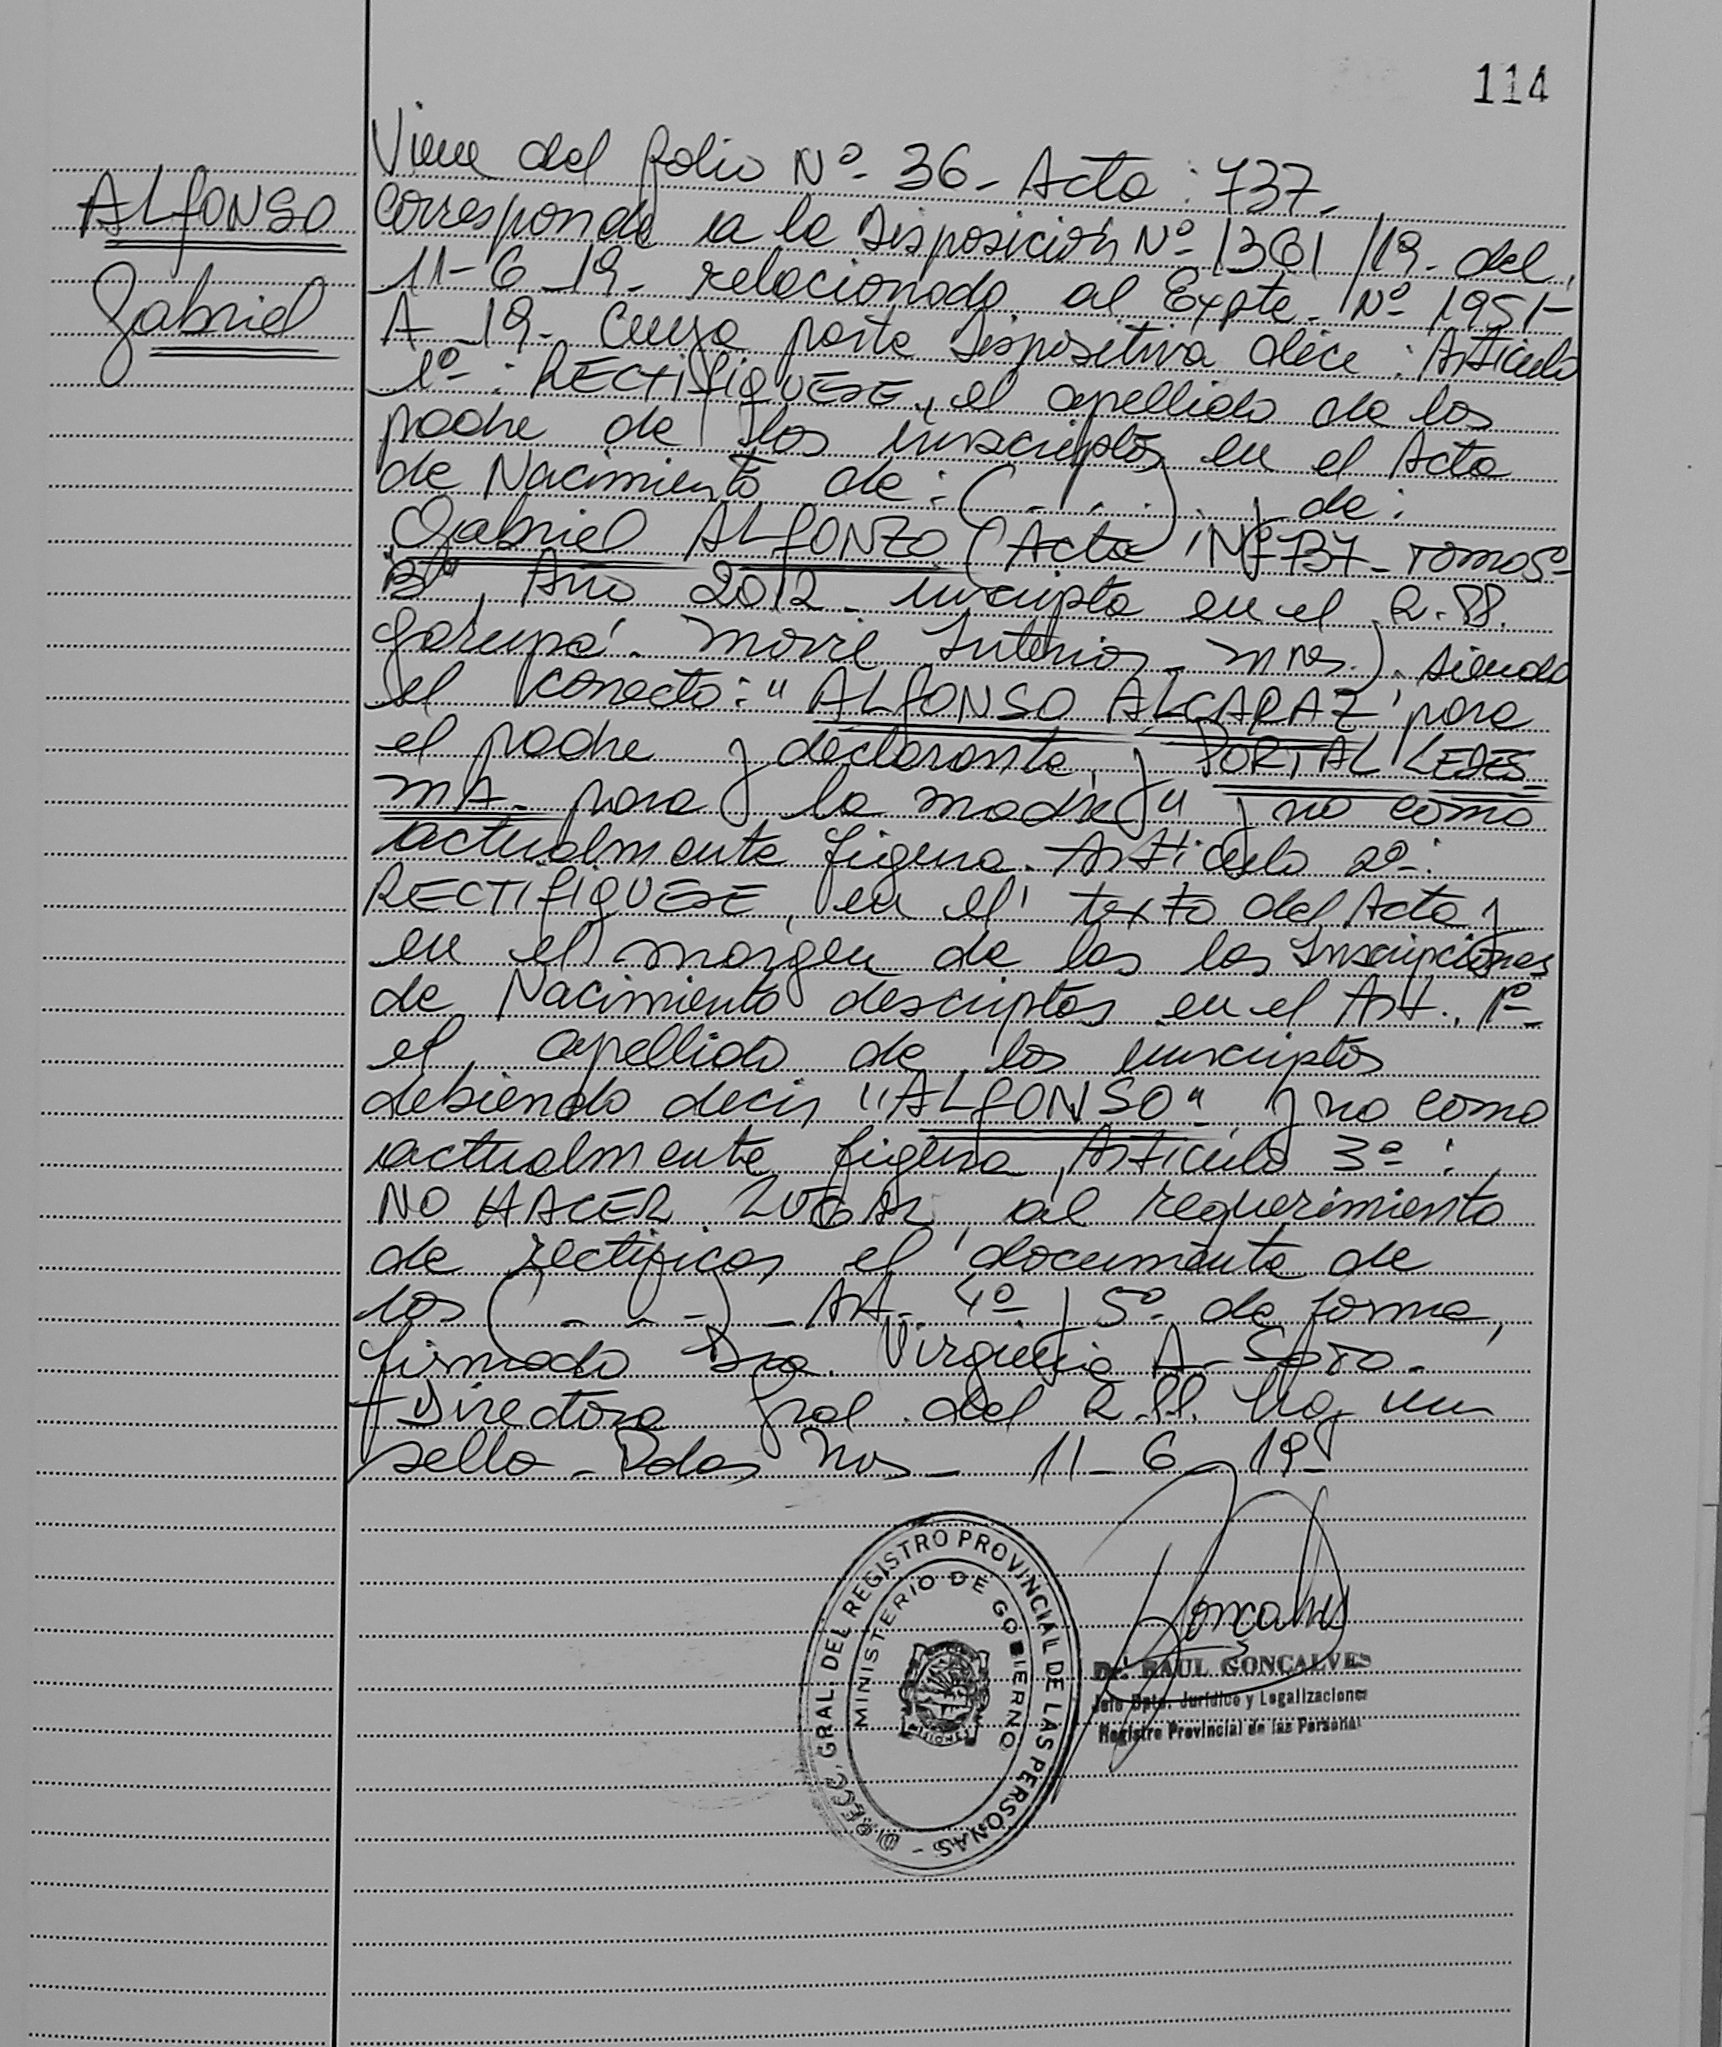 114
ALFONSO
Gabriel
Viene del folio Nº 36 - Acta : 737 -
Corresponde a la Disposición Nº 1361 /19 - del
11-6-19 - relacionado al Expte - Nº 1951-
A-19 - Cuya parte Dispositiva dice : Artículo
1º : RECTIFIQUESE, el apellido de los
padre de los inscriptos en el Acta
de Nacimiento de : ( - . . . ) y de :
Gabriel ALFONZO (Acta Nº 737 - Tomo 5º
"B", Año 2012 - inscripta en el R.PP.
Garupá - Movil Interior - Mnes.) . siendo
el correcto : "ALFONSO ALCARAZ" para
el padre y declarante, y PORTAL LEDES
MA - para la madre" y no como
actualmente figura. Artículo 2º :
RECTIFIQUESE, en el texto del Acta y
en el margen de las las Inscripciones
de Nacimiento descriptos en el Art. 1º
el apellido de los inscriptos
debiendo decir "ALFONSO" y no como
actualmente figura, Artículo 3º :
NO HACER LUGAR, al requerimiento
de rectificar el documento de
los ( - - - ) - Art. 4º y 5º de forma,
firmado Dra. Virginia A. Soto -
Directora Gral. del R.PP. Hay un
sello - Pdas Mnes - 11-6-19 -
DIRECC. GRAL. DEL REGISTRO PROVINCIAL DE LAS PERSONAS -
MINISTERIO DE GOBIERNO
MISIONES
Dr. RAUL GONÇALVES
Jefe Dpto. Jurídico y Legalizaciones
Registro Provincial de las Personas